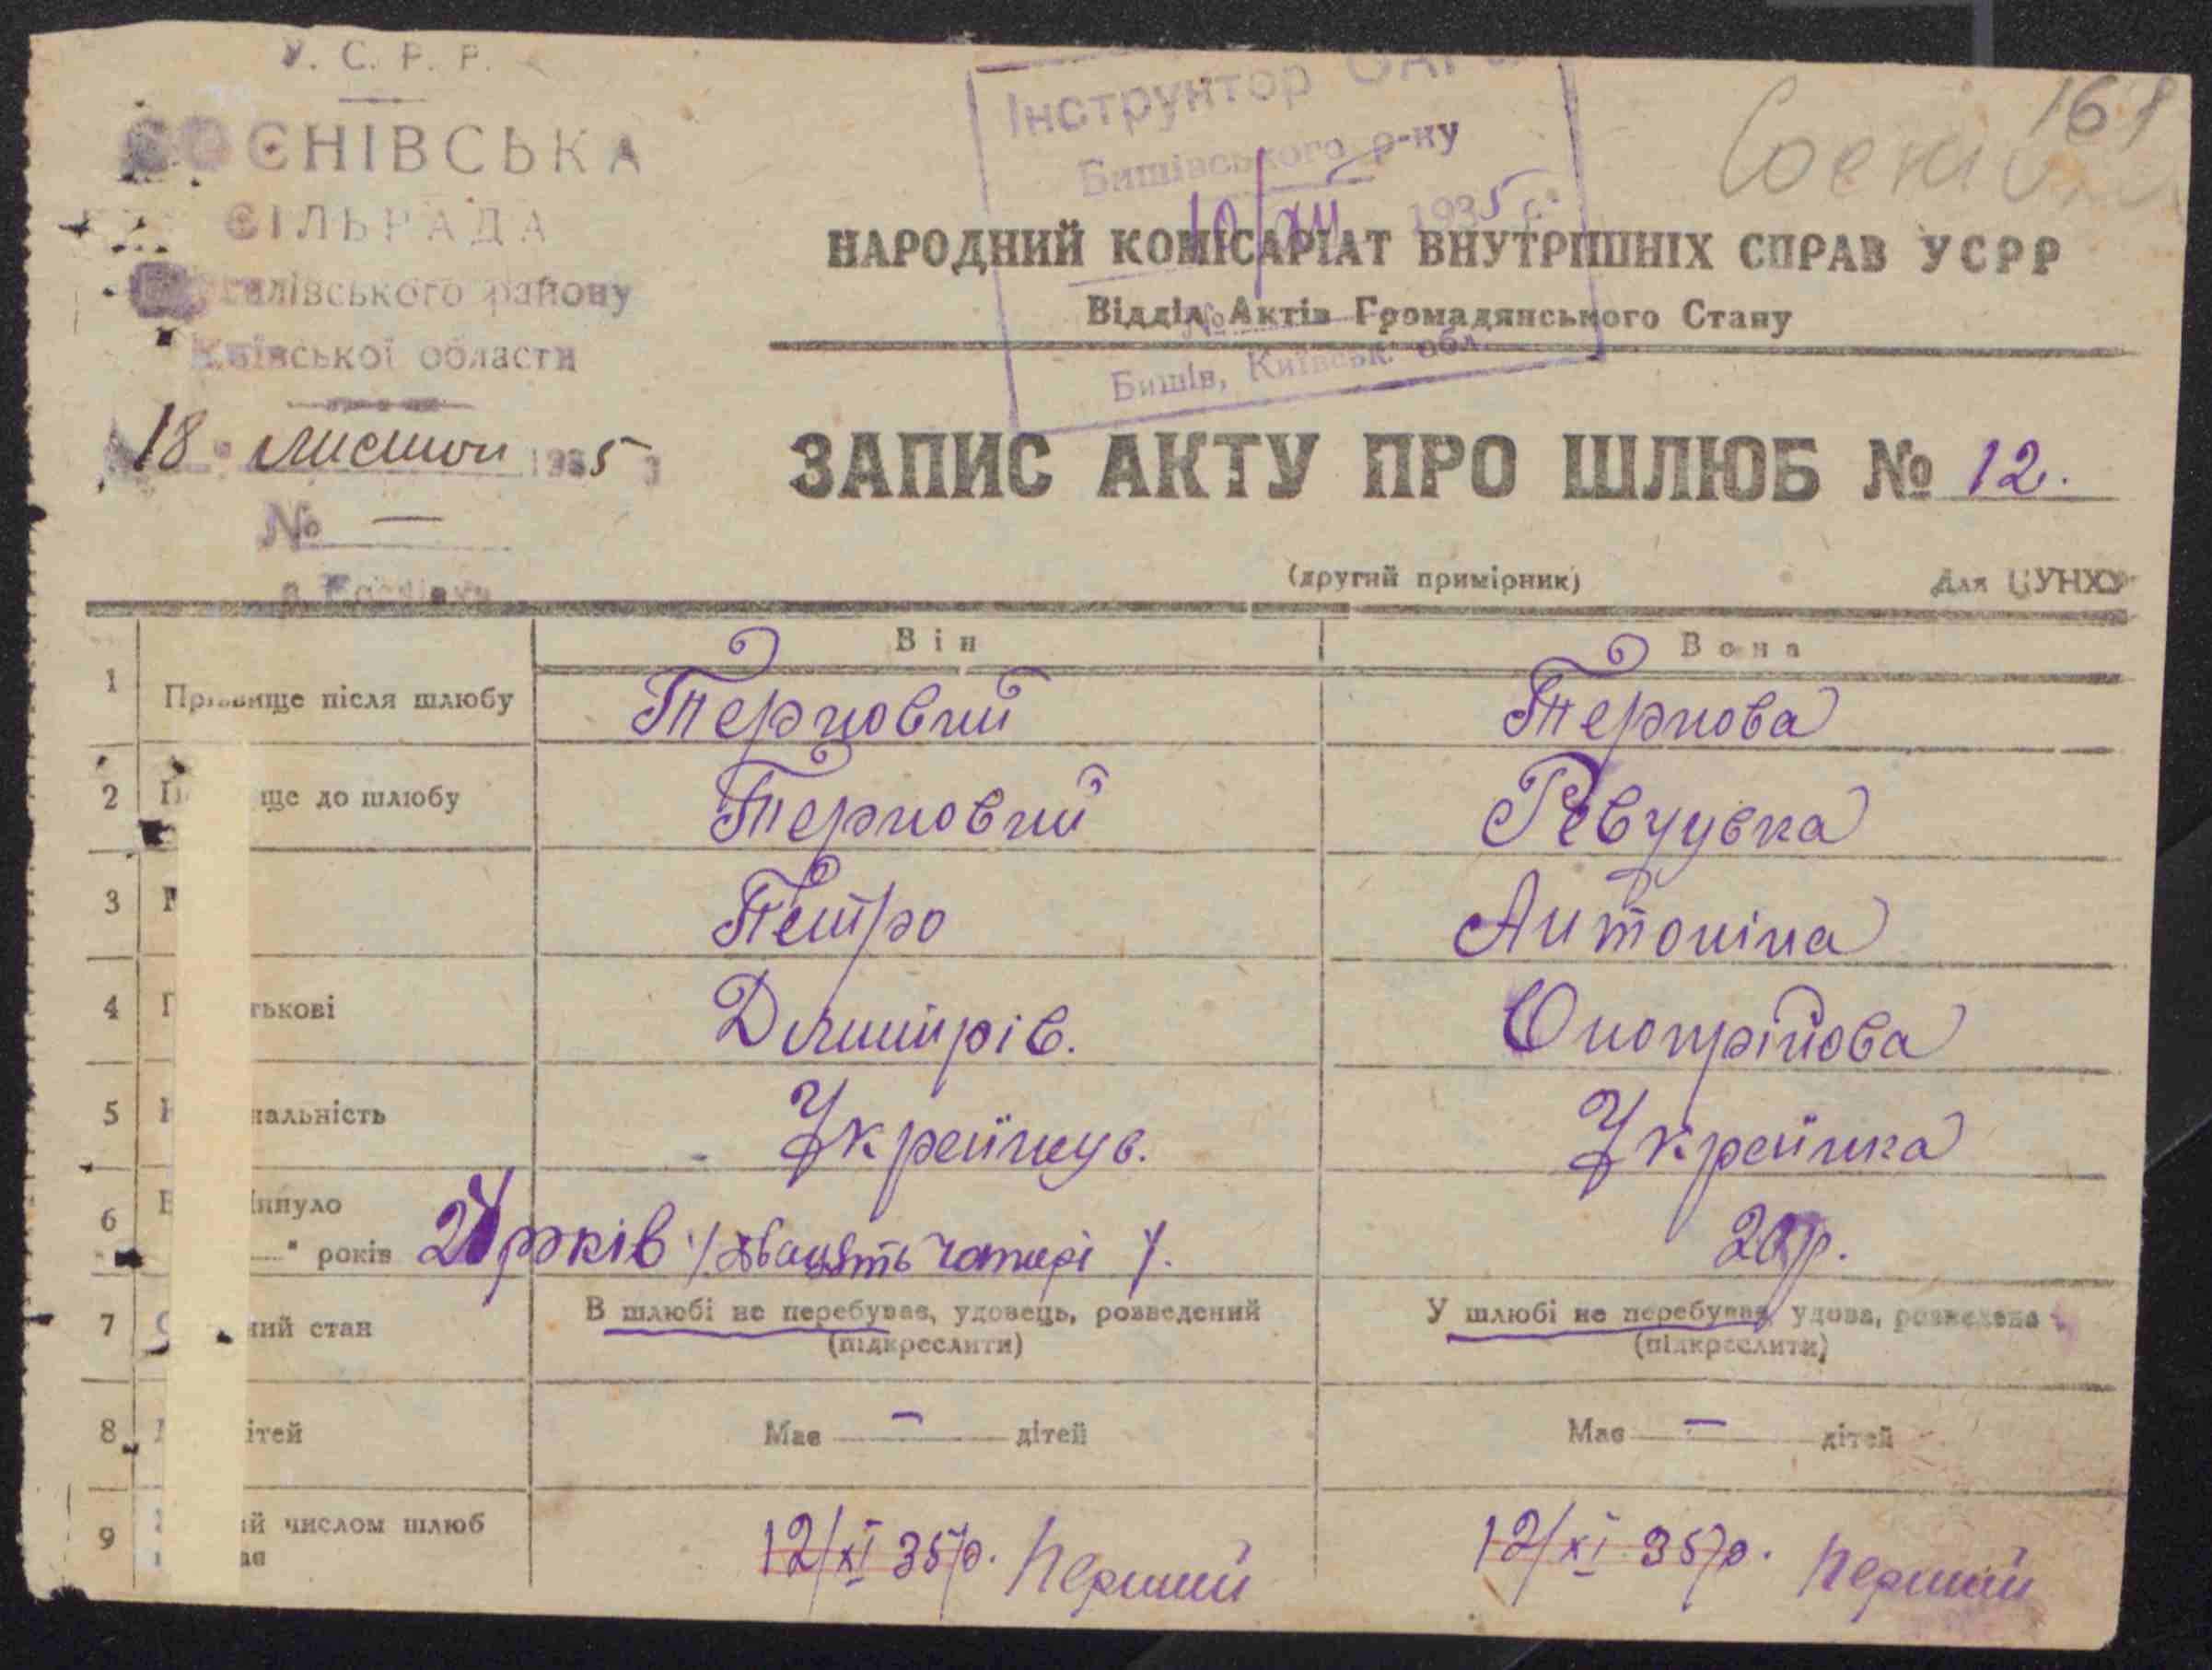 У. С. Р. Р.
ЄНІВСЬКА
СІЛЬРАДА
району
Київської области
18 листоп 1935
№ —
Інструктор
Бишівського р-ну
10/XII 1935 р.
№
Бишів, Київськ. обл.
161
НАРОДНИЙ КОМІСАРІАТ ВНУТРІШНІХ СПРАВ УСРР
Відділ Актів Громадянського Стану
ЗАПИС АКТУ ПРО ШЛЮБ № 12.
(другий примірник) Для ЦУНХУ
Він Вона
1 Прізвище після шлюбу Терновий Тернова
2 ще до шлюбу Терновий Ревуцька
3 Петро Антоніна
4 тькові Дмитрів. Онопрійова
5 нальність Українець. Українка
6 инуло
років 24 років /. двацять чотирі /. 20 р.
7 ний стан В шлюбі не перебував, удовець, розведений У шлюбі не перебував, удова, розведена
(підкреслити) (підкреслити)
8 ітей Має — дітей Має — дітей
9 ий числом шлюб 12/XI 35 р. Перший 12/XI 35 р. Перший
ає